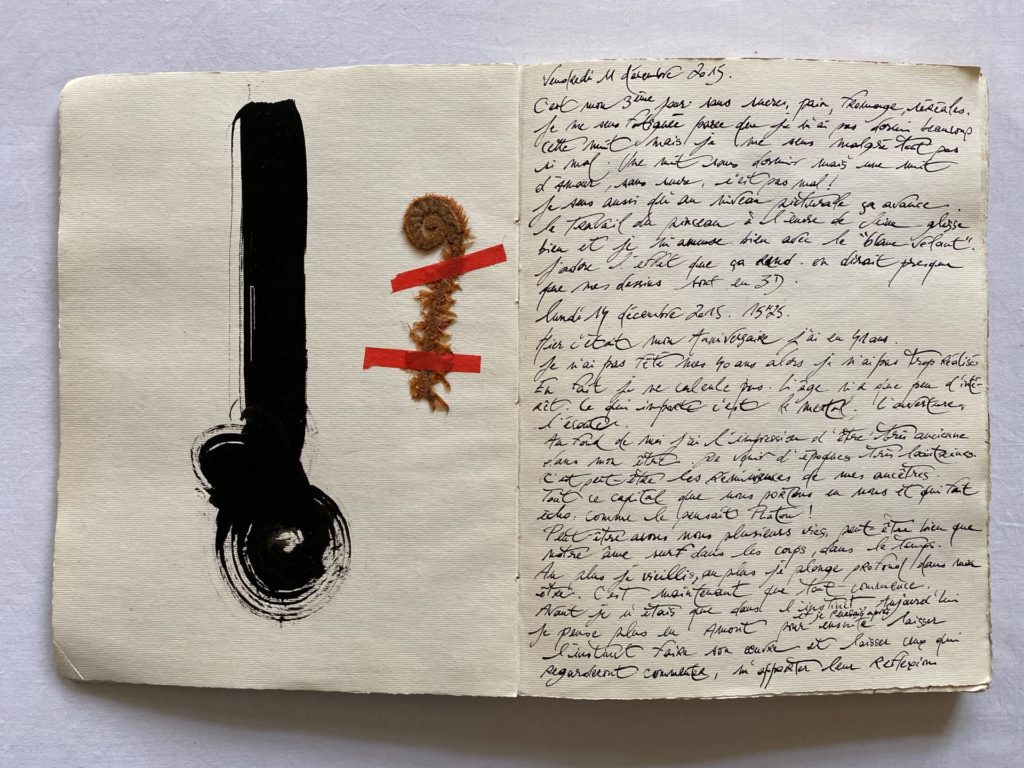 Vendredi 11 décembre 2015.
C'est mon 3ème jour sans sucre, pain, fromage, céréales.
Je me sens fatiguée parce que je n'ai pas dormi beaucoup
cette nuit mais je me sens malgré tout pas
si mal. Une nuit sans dormir mais une nuit
d'Amour, sans sucre, c'est pas mal !
Je sens aussi qu'au niveau picturale ça avance.
le travail du pinceau à l'encre de chine glisse
bien et je m'amuse bien avec le "blanc volant".
J'adore l'effet que ça rend. on dirait presque
que mes dessins sont en 3D.
lundi 14 décembre 2015. 15H25.
Hier c'était mon Anniversaire j'ai eu 41 ans.
Je n'ai pas fêté mes 40 ans alors je n'ai pas trop réalisé
En fait je ne calcule pas. L'âge n'a que peu d'inté-
rêt. Ce qui importe c'est le mental, l'ouverture,
l'écoute.
Au fond de moi j'ai l'impression d'être très ancienne
dans mon être. De venir d'époques très lointaines.
C'est peut-être les Réminiscences de mes ancêtres.
Tout ce capital que nous portons en nous et qui fait
écho. comme le pensait Platon !
Peut-être avons nous plusieurs vies, peut être bien que
nôtre âme surf dans les corps, dans le temps.
Au plus je vieillis, au plus je plonge profond dans mon
être. C'est maintenant que tout commence.
Avant je n'étais que dans l'instinct Aujourd'hui
et je pensais après
je pense plus en Amont pour ensuite laisser
l'instinct faire son œuvre et laisser ceux qui
regarderont commenter, m'apporter leur Reflexions